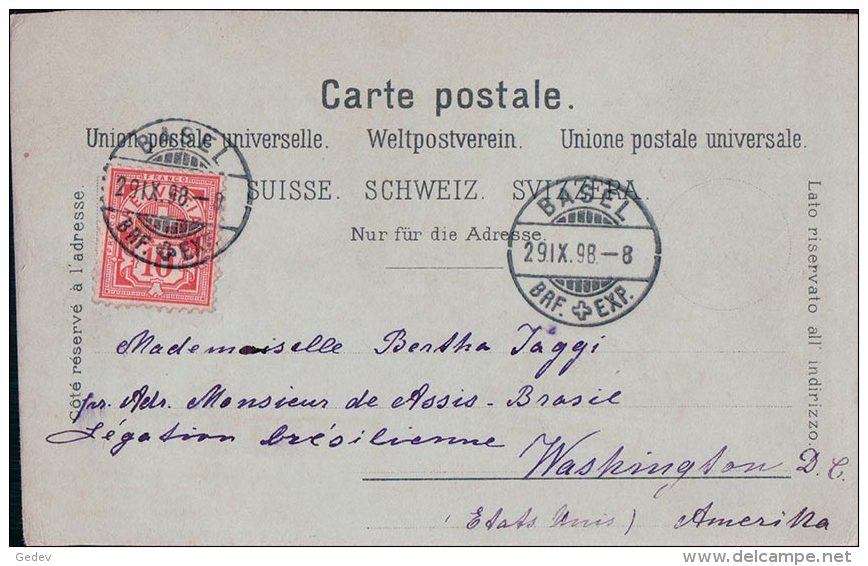 Carte postale.
Union postale universelle. Weltpostverein. Unione postale universale.
SUISSE. SCHWEIZ. SVIZZERA.
Nur für die Adresse.
Côté réservé à l'adresse.
Lato riservato all' indirizzo.
FRANCO
10
BASEL
29.IX.98.-8
BRF. EXP.
BASEL
29.IX.98.-8
BRF. EXP.
Mademoiselle Bertha Jäggi
pr. Adr. Monsieur de Assis-Brasil
Légation brésilienne
Washington D.C.
(Etats Unis) Amerika
Gedev
delcampe.net